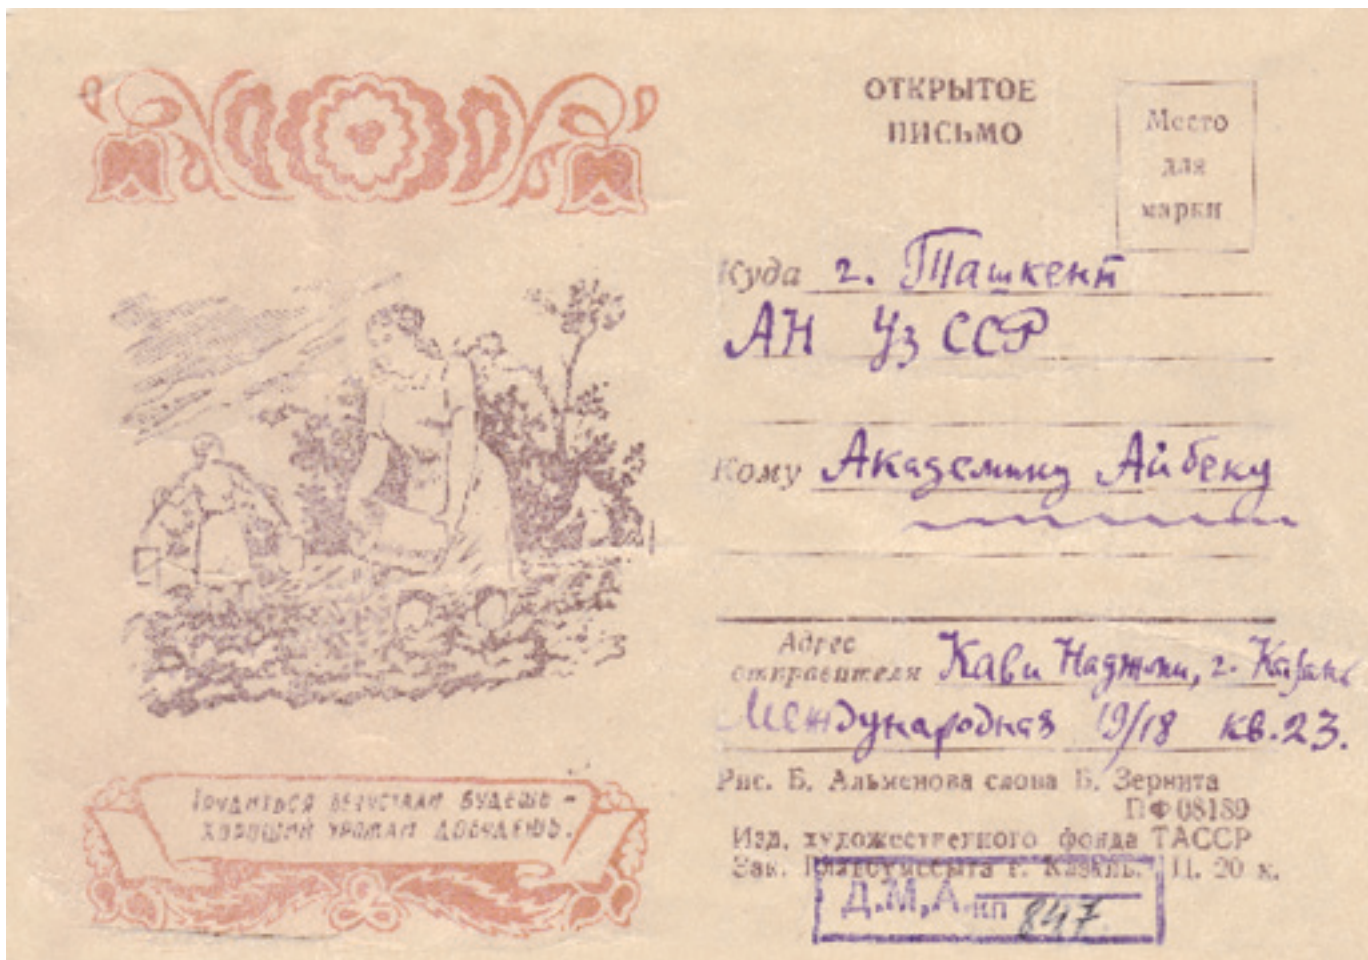 ОТКРЫТОЕ
ПИСЬМО
Место
для
марки
Куда г. Ташкент
АН Уз ССР
Кому Академику Айбеку
Адрес
отправителя Кави Наджми, г. Казань
Международная 19/18 кв. 23.
Рис. Б. Альменова слова Б. Зернита
ПФ 08189
Изд. художественного фонда ТАССР
Зак. г. Казань. Ц. 20 к.
Д.М.А. КП 847
ТРУДИТЬСЯ БЕЗ УСТАЛИ БУДЕШЬ –
ХОРОШИЙ УРОЖАЙ ДОБУДЕШЬ.